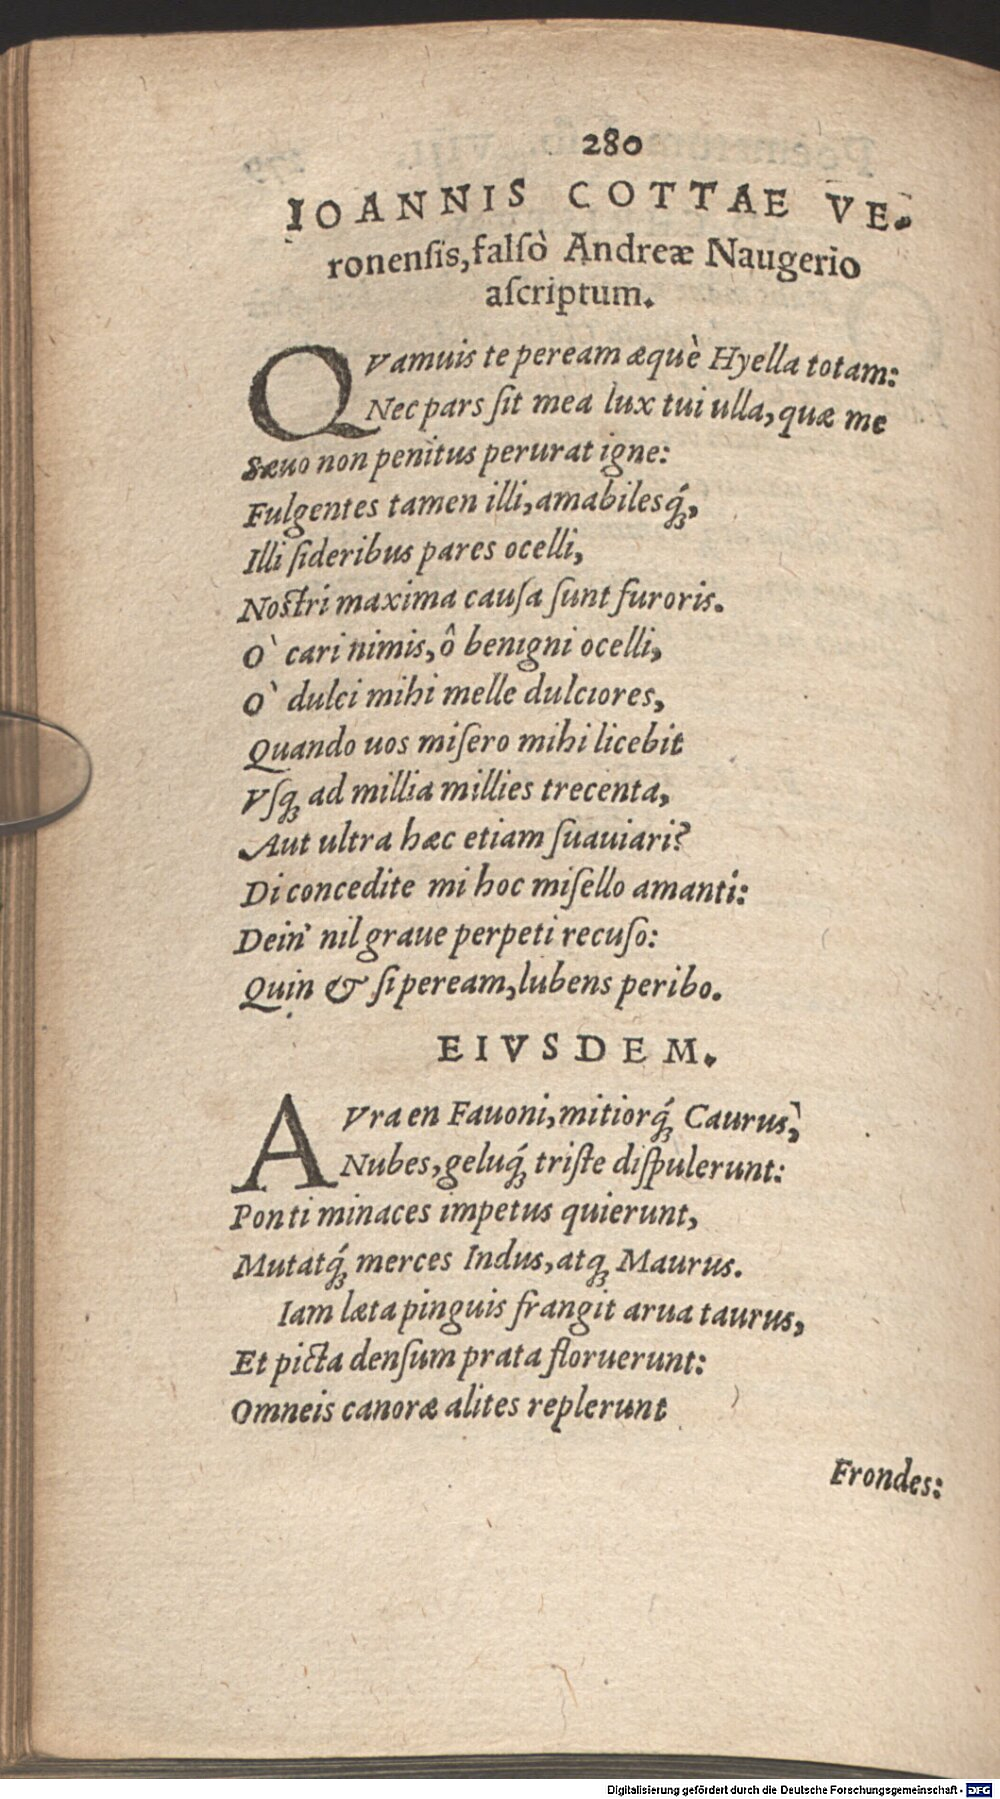 280
IOANNIS COTTAE VE-
ronenſis, falſò Andreæ Naugerio
aſcriptum.
QVamuis te peream æquè Hyella totam:
Nec pars ſit mea lux tui ulla, quæ me
Sæuo non penitus perurat igne:
Fulgentes tamen illi, amabilesq́;,
Illi ſideribus pares ocelli,
Noſtri maxima cauſa ſunt furoris.
O` cari nimis, ô benigni ocelli,
O` dulci mihi melle dulciores,
Quando uos miſero mihi licebit
Vſq; ad millia millies trecenta,
Aut ultra hæc etiam ſuauiari?
Di concedite mi hoc miſello amanti:
Dein' nil graue perpeti recuſo:
Quin & ſi peream, lubens peribo.
EIVSDEM.
AVra en Fauoni, mitiorq́; Caurus,
Nubes, geluq́; triſte diſpulerunt:
Ponti minaces impetus quierunt,
Mutatq́; merces Indus, atq; Maurus.
Iam læta pinguis frangit arua taurus,
Et picta denſum prata floruerunt:
Omneis canoræ alites replerunt
Frondes:
Digitalisierung gefördert durch die Deutsche Forschungsgemeinschaft - DFG